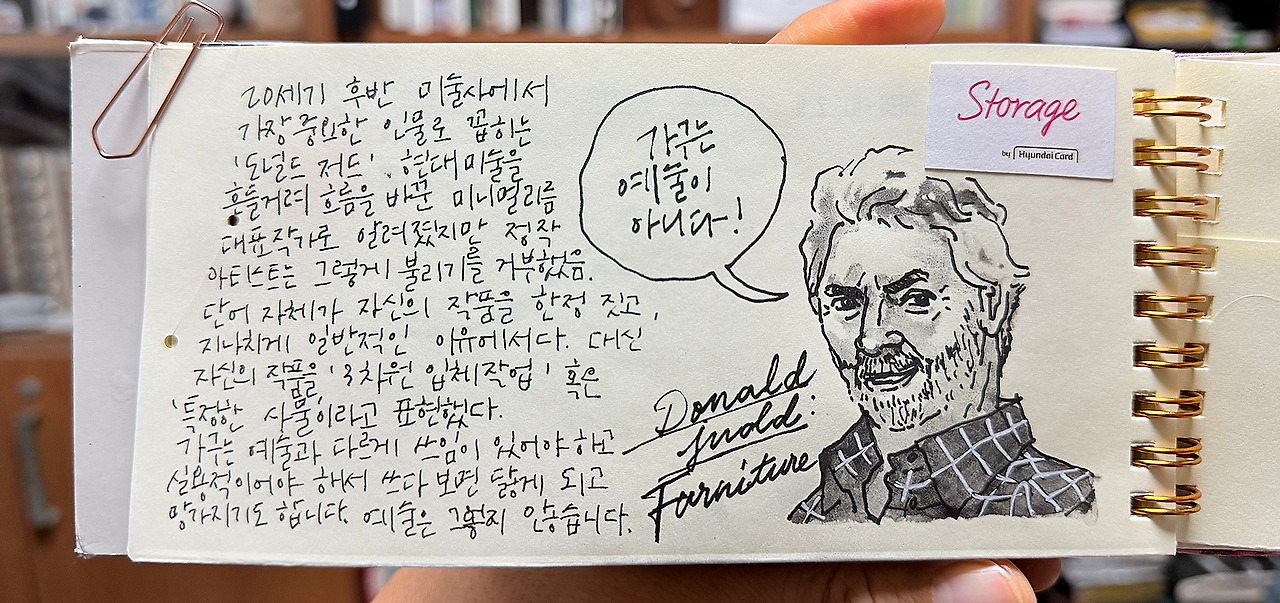 20세기 후반 미술사에서
가장 중요한 인물로 꼽히는
'도널드 저드'. 현대미술을
흔들거려 흐름을 바꾼 미니멀리즘
대표작가로 알려졌지만 정작
아티스트는 그렇게 불리기를 거부했음.
단어 자체가 자신의 작품을 한정 짓고,
지나치게 일반적인 이유에서다. 대신
자신의 작품을 '3차원 입체작업' 혹은
'특정한 사물'이라고 표현했다.
가구는 예술과 다르게 쓰임이 있어야 하고
실용적이어야 해서 쓰다 보면 닳게 되고
망가지기도 합니다. 예술은 그렇지 않습니다.
가구는
예술이
아니다!
Donald
Judd:
Furniture
Storage
by Hyundai Card